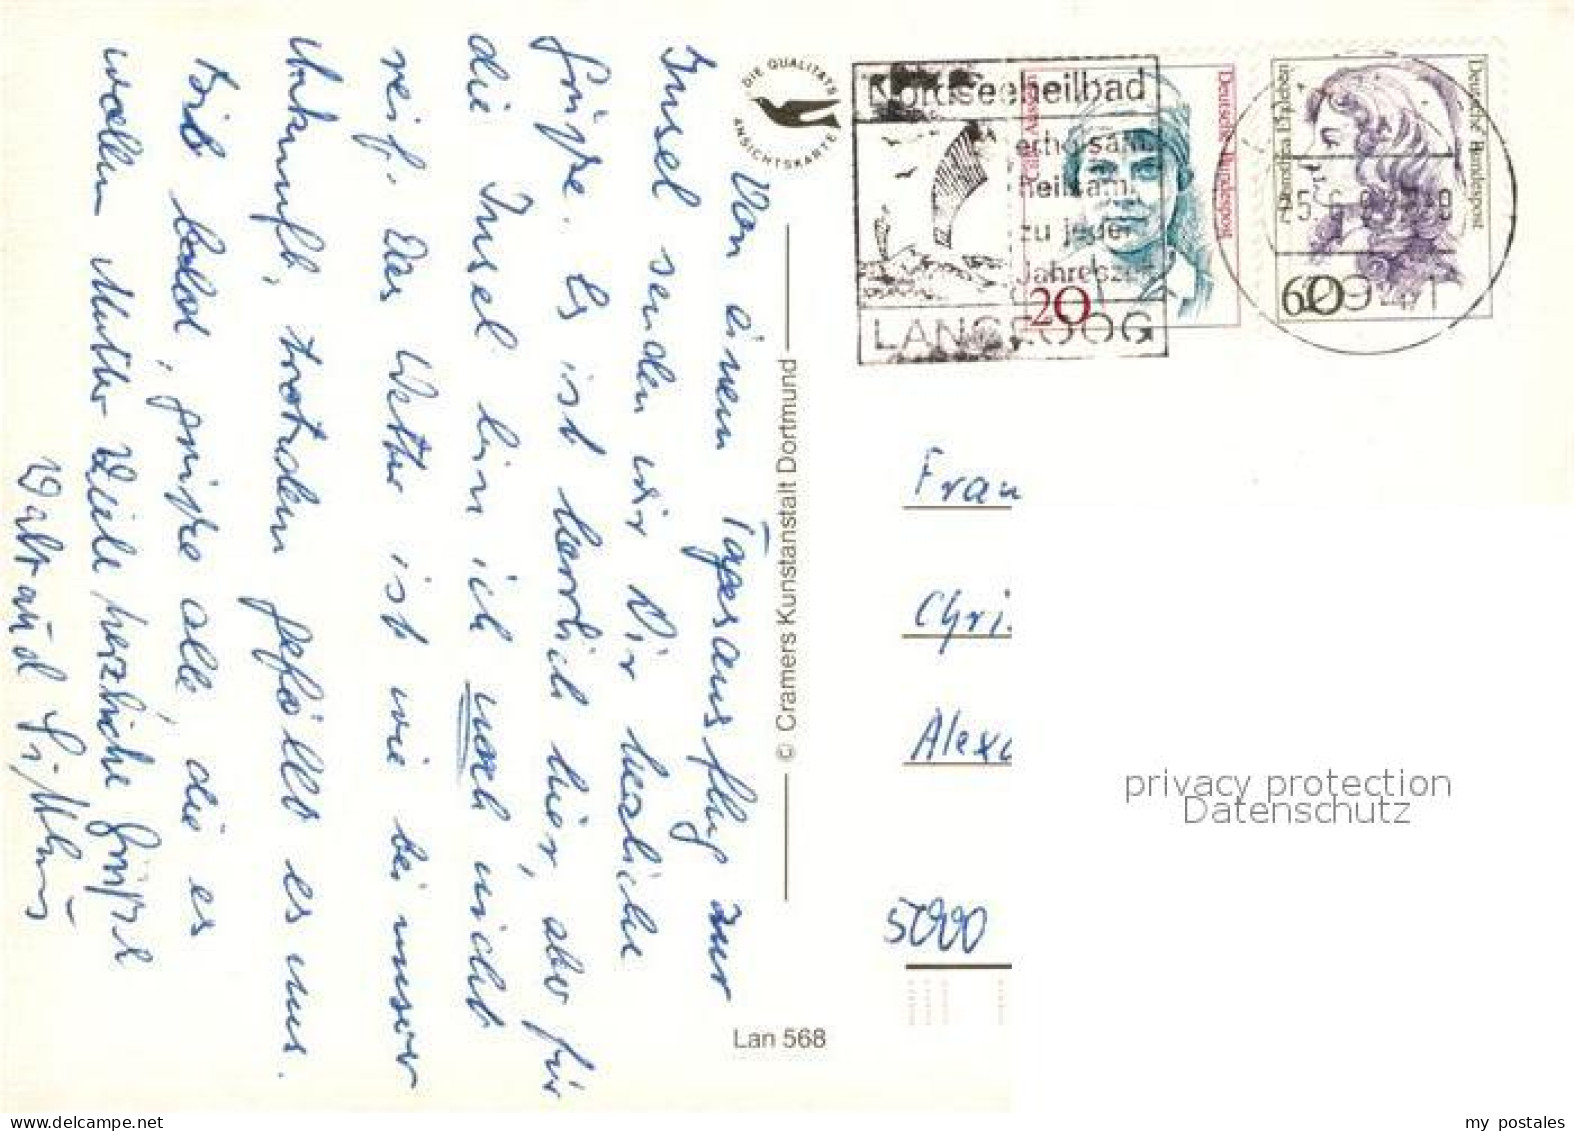 Von einem Tagesausflug zur
Insel senden wir Dir herzliche
Grüße. Es ist herrlich hier, aber für
die Insel bin ich noch nicht
reif. Das Wetter ist wie bei unserer
Ankunft, trotzdem gefällt es uns.
Bis bald, grüße alle, die es
wollen Mutter Viele herzliche Grüße
Waltraud
DIE QUALITÄTS
ANSICHTSKARTE
© Cramers Kunstanstalt Dortmund
Lan 568
Nordseeheilbad
erholsam
heilsam
zu jeder
Jahreszeit
LANGEOOG
Deutsche Bundespost
20
Deutsche Bundespost
60
Frau
Chri
Alexa
privacy protection
Datenschutz
my postales